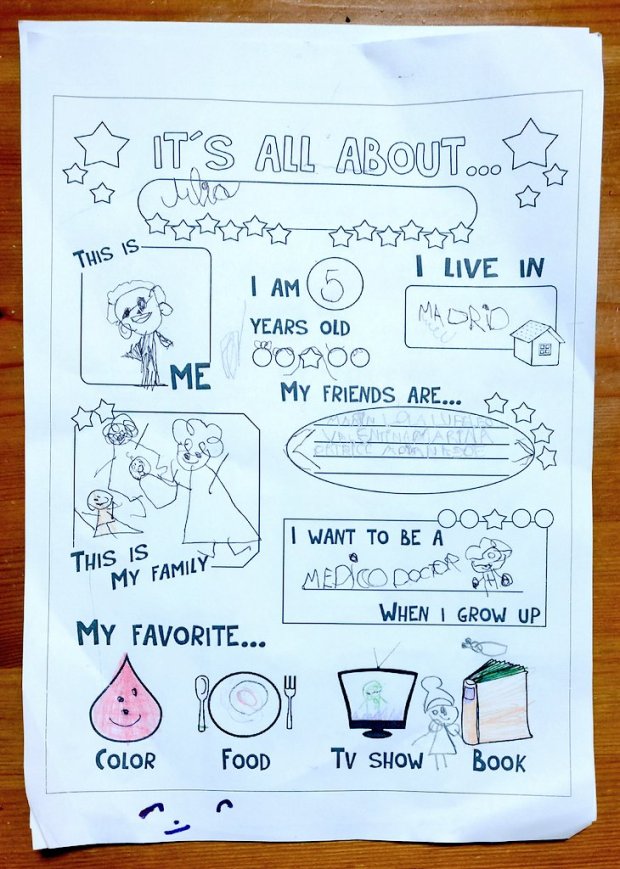 IT'S ALL ABOUT...
THIS IS
ME
I AM 5
YEARS OLD
I LIVE IN
MADRID
MY FRIENDS ARE...
THIS IS
MY FAMILY
I WANT TO BE A
MEDICO DOCTOR
WHEN I GROW UP
MY FAVORITE...
COLOR
FOOD
TV SHOW
BOOK